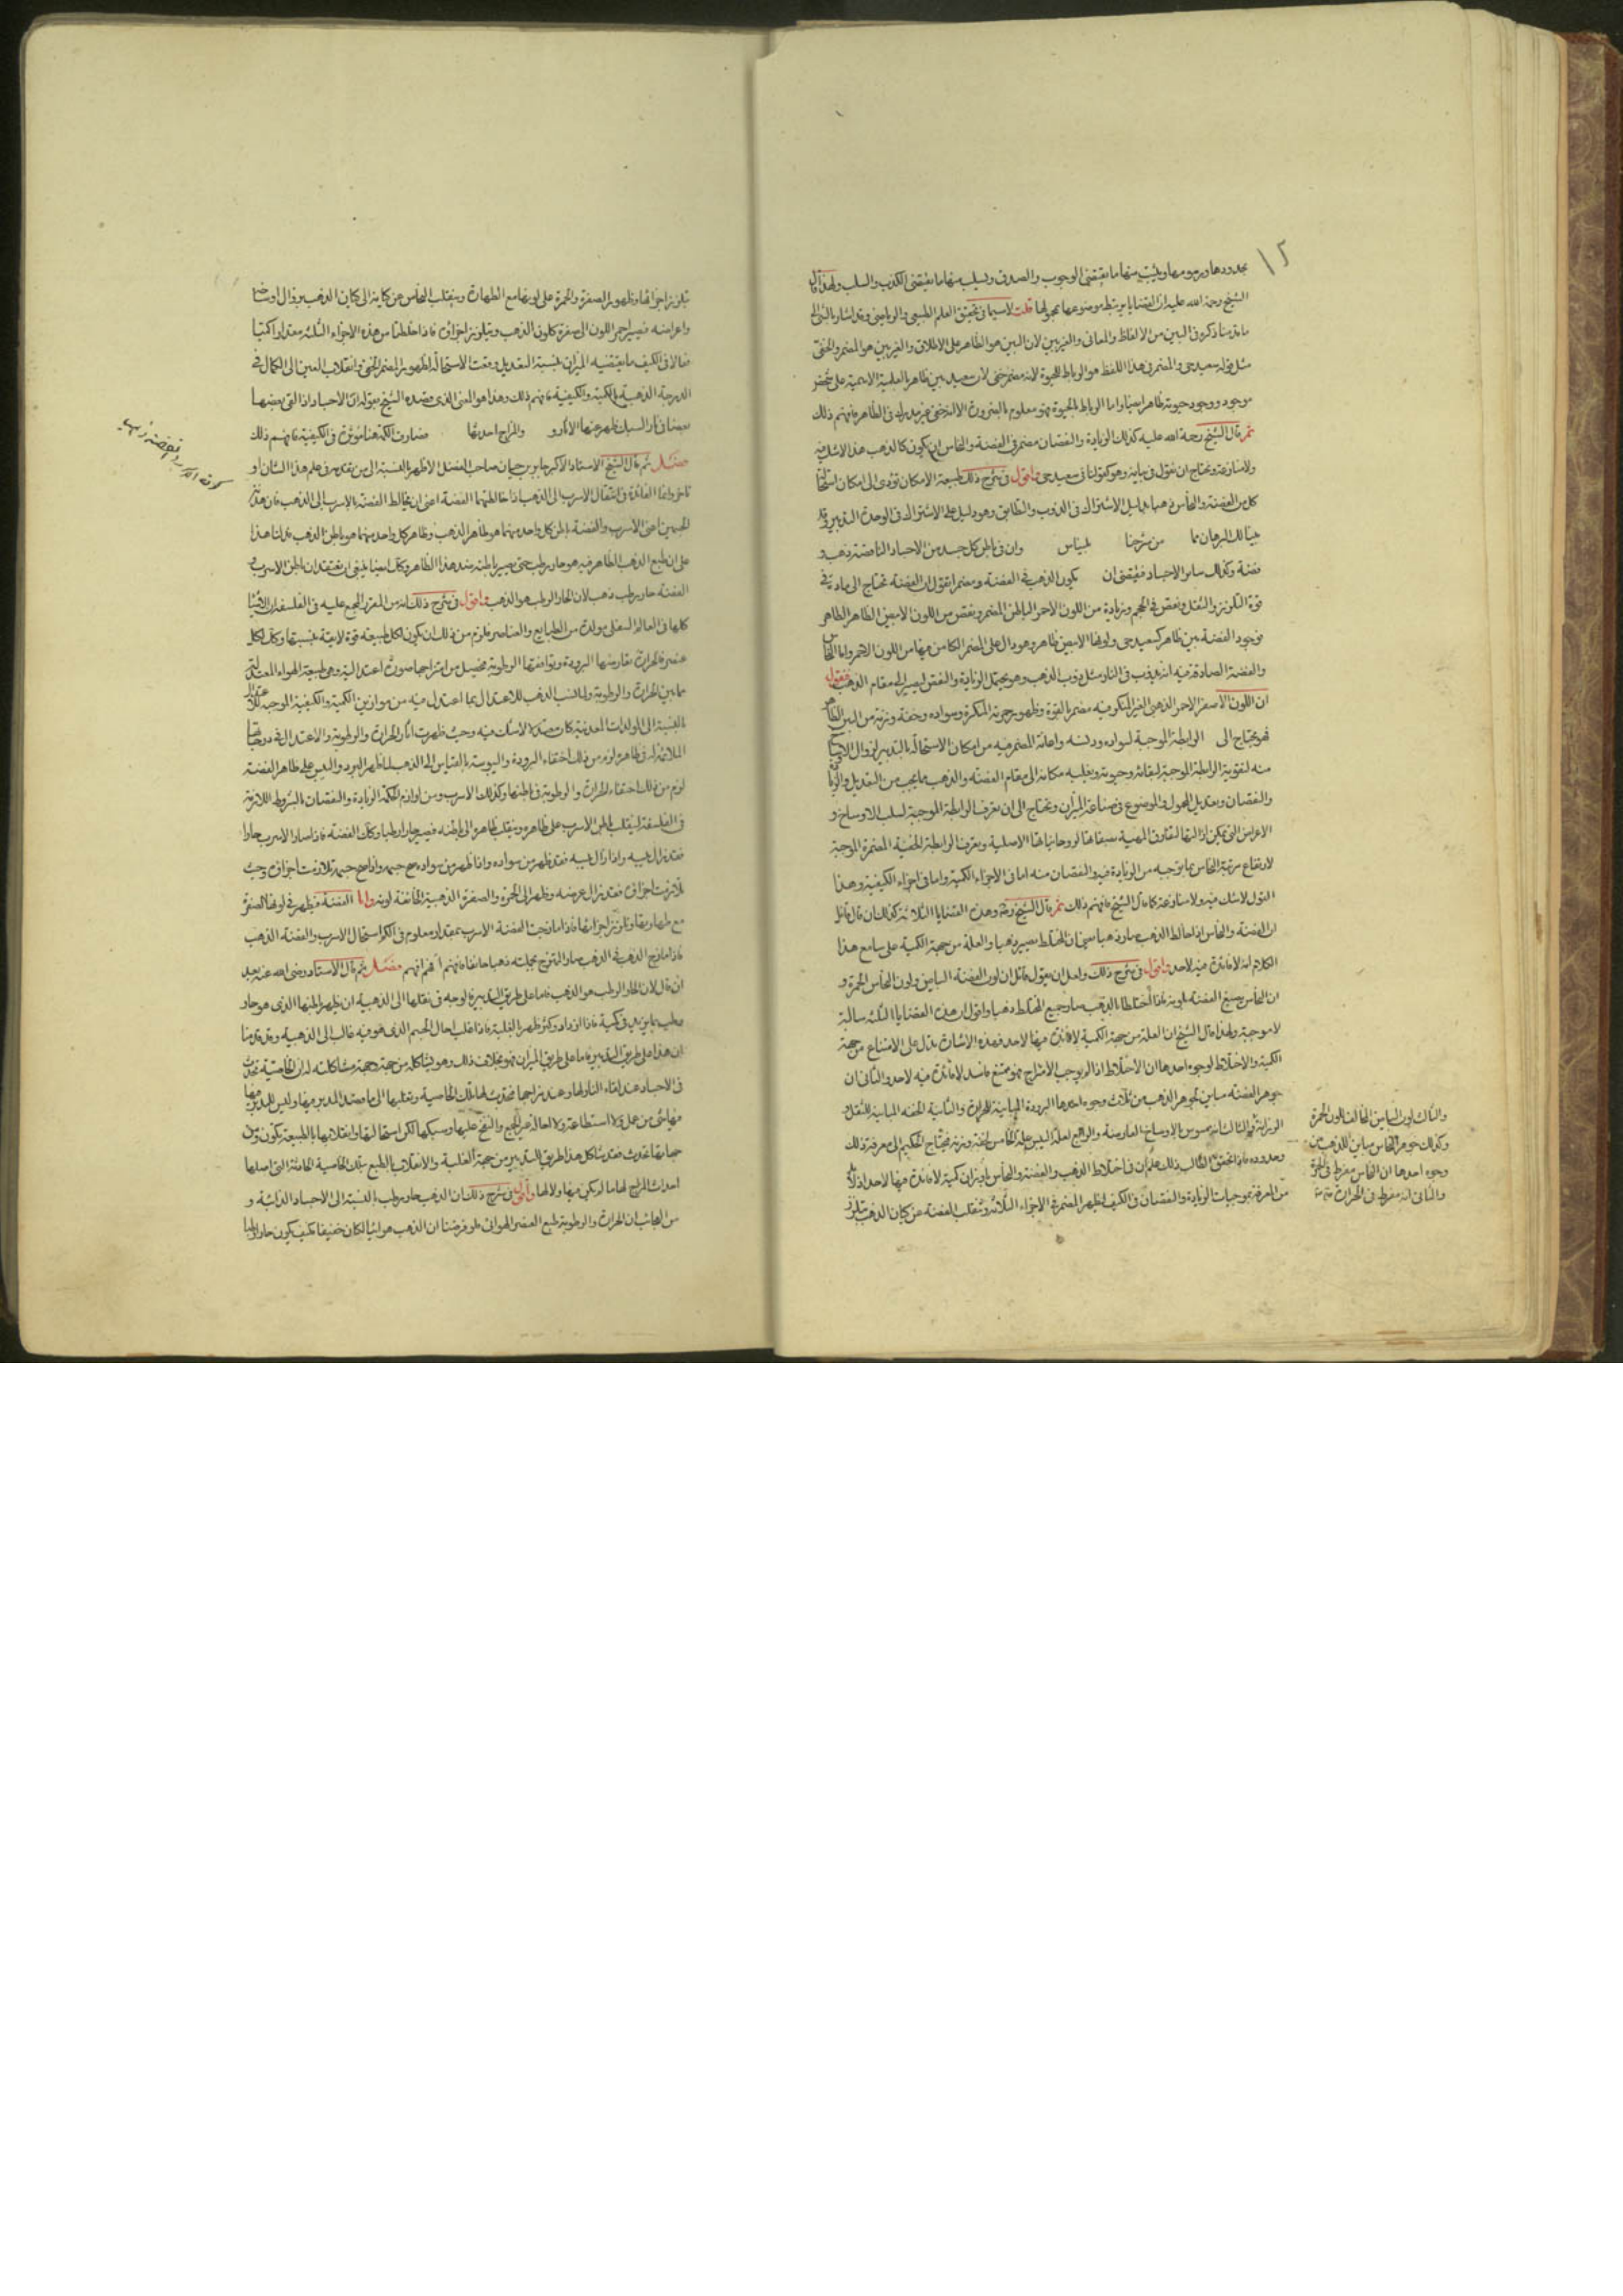 ١٢
بحدودها ورسومها ويثبت منها ما يقتضى الوجوب والصدق ويسلب منها ما يقتضى الكذب والسلب ولهذا قال
الشيخ رحمة الله عليه ان القضايا يرتبط موضوعها بمحمولها قلت لاسيما فى تحقيق العلم الطبيعى والرياضى وقد اشار بالشيخ الى
ما قدمنا ذكره فى البين من الالفاظ والمعانى والغير بين لان البين هو الظاهر على الاطلاق والغير بين هو المضمر والخفى
مثل قوله سعيد حى والمضمر فى هذا اللفظ هو الرباط للحيوة لانه مضمر خفى لان سعيد بين ظاهر بالعلمية الاسمية على شخص
موجود ووجود حيوته ظاهر ايضا واما الرباط بالحيوة فهو معلوم بالضرورة الا انه خفى غير مدرك فى الظاهر فافهم ذلك
ثم قال الشيخ رحمة الله عليه كذلك الزيادة والنقصان مضمر فى الفضة والنحاس ان يكون كالذهب هذا لا شك فيه
ولا منازعة ونحتاج ان نقول فى بيانه وهو كقولنا فى سعيد حى واقول فى شرح ذلك طبيعة الامكان تؤدى الى امكان استحالة
كل من الفضة والنحاس ذهبا بدليل الاشتراك فى الذوب والتطابق وهو دليل على الاشتراك فى الوحدة التدبير وقد
بينا لك البرهان مما من شرحنا بليناس وان فى باطن كل جسد من الاجساد الناقصة ذهب و
فضة وكذلك ساير الاجساد فيقتضى ان يكون الذهب فى الفضة ومضمرا بقول ان الفضة تحتاج الى ماد
قوة التلزز والثقل ونقص فى الحجم وزيادة من اللون الاحمر الباطن المضمر ونقص من اللون الابيض الظاهر الظاهر
فوجود الفضة بين ظاهر كسعيد حى ولونها الابيض ظاهر وهو دال على المضمر الكامن فيها من اللون الاحمر واما النحاس
والفضة الصادقة فيه انه يذوب فى النار مثل ذوب الذهب وهو يحتمل الزيادة والنقص ليصير الى مقام الذهب فنقول
ان اللون الاصفر الاحمر الذهبى الغير المتكون فيه مضمر بالقوة وظهور حمرته المنكرة وسواده وخفة وزنه من البين الظاهر
فهو يحتاج الى الرابطة الموجبة لسواده ودنسه واحالة المضمر فيه من امكان الاستحالة بالتدبير لزوال الاوساخ
منه لتقوية الرابطة الموجبة لبقائه وحيوته ونقلبه مكانه الى مقام الفضة والذهب مما يجب من التعديل والزيادة
والنقصان وبتعديل المحمول والموضوع فى صناعة الميزان ونحتاج الى ان نعرف الرابطة الموجبة لسلب الاوساخ و
الاعراض التى يمكن ازالتها لتفارق المهية ببقائها لروحانياتها الاصلية ونعرف الرابطة الخفية المضمرة الموجبة
لارتفاع مرتبة النحاس بما توجبه من الزيادة فيه والنقصان منه اما فى الاجزاء الكمية واما فى اجزاء الكيفية وهذا
القول لا شك فيه ولا منازعة كما قال الشيخ فافهم ذلك ثم قال الشيخ وهذه القضايا الثلاثة كذلك ان قال قائل
ان الفضة والنحاس اذا خالط الذهب صار ذهبا سيما ان المختلط يصير ذهبا والعلة من جهة الكمية على سامع هذا
الكلام انه لا فائدة فيه لاحد واقول فى شرح ذلك ولعل ان يقول قائل ان لون الفضة البياض ولون النحاس الحمرة و
ان النحاس يصبغ الفضة بلونه فاذا اختلطا بالذهب صار جميع المختلط ذهبا واقول ان هذه القضايا الثلثة سالبة
لا موجبة ولهذا قال الشيخ ان العلة من جهة الكمية لا فائدة فيها لاحد فهذه الاشارة تدل على الامتناع من جهة
الكمية والاختلاط لوجوه احدها ان الاختلاط اذا لم يوجب الامتزاج فهو ممتنع فاسد لا فائدة فيه لاحد والثانى ان
جوهر الفضة مباين لجوهر الذهب من ثلاث وجوه احدها البرودة المباينة للحرارة والثانية الخفة المباينة للثقل
الوزانية
وحدوده فاذا تحقق الطالب ذلك علم ان فى اختلاط الذهب والفضة والنحاس باوزان كمية لا فائدة فيها لاحد اذ لابد
من المعرفة بموجبات الزيادة والنقصان فى الكيف ليظهر المضمر فى الاجزاء الثلاثة وتنقلب الفضة عن كيان الذهب بتلزز
والثالث لون البياض المخالف للون الحمرة
وكذلك جوهر النحاس مباين للذهب من
وجوه احدها ان النحاس مفرط فى الحمرة
والثانى انه مفرط فى الحرارة
تلزز اجزائها وظهور الصفرة والحمرة على لونها مع الطهارة وينقلب النحاس عن كيانه الى كيان الذهب بزوال اوساخه
واعراضه فيصير احمر اللون الى صفرة كلون الذهب ويتلزز اجزاؤه فاذا اختلطنا من هذه الاجزاء الثلثة مقدارا كميا
الدرجة الذهبية بالكمية والكيفية فافهم ذلك وهذا هو المعنى الذى قصده الشيخ بقوله ان الاجساد اذا القى بعضها
بعضا فى نار السبك ظهر عنها الاثار و والمزاج احدثها فصارت الكمة هنا مؤثرة فى الكيفية فافهم ذلك
فصل ثم قال الشيخ الاستاذ الاكبر جابر بن حيان صاحب الفضل الاظهر بالنسبة الى من تقدمه فى علم هذا الشان او
تاخر وانما الفائدة فى انتقال الاسرب الى الذهب اذا خالطتهما الفضة اعنى ان يخالط الفضة بالاسرب الى الذهب فان هذين
الجسمين اعنى الاسرب والفضة باطن كل واحد منهما هو ظاهر الذهب وظاهر كل واحد منهما هو باطن الذهب فدلنا هذا
على ان طبع الذهب الظاهر فيه هو حار رطب حتى يصير باطنه ضد هذا الظاهر وكان ايضا ينبغى ان نعتقد ان باطن الاسرب و
الفضة حار رطب ذهب لان الحار الرطب هو الذهب واقول فى شرح ذلك انه من المقرر المجمع عليه فى الفلسفة ان الاشيا
كلها فى العالم السفلى مولدة من الطبايع والعناصر فلزم من ذلك ان يكون لكل طبيعة قوة لايقة بنسبتها وكان لكل
عنصر فالحرارة تقارنها البرودة وتوافقها الرطوبة فيحصل من امتزاجها صورة اعتدالية وهى طبيعة الهواء المعتدل
ما بين الحرارة والرطوبة ولما نسب الذهب للاعتدال بما اعتدل فيه من موازين الكمية والكيفية الموجبة للاعتدال
بالنسبة الى المولدات المعدنية كان معتدلا لا شك فيه وحيث ظهرت اثار الحرارة والرطوبة والاعتدال فى درجاتها
الملائمة له فى ظاهره لزم من ذلك اختفاء البرودة واليبوسة بالقياس الى الذهب فلما ظهر البرد واليبس على ظاهر الفضة
لزم من ذلك اختفاء الحرارة والرطوبة فى باطنها وكذلك الاسرب ومن لوازم الحكمة الزيادة والنقصان بالشروط اللازمة
فى الفلسفة لينقلب باطن الاسرب على ظاهره وينقلب ظاهره الى باطنه فيصير حارا رطبا وكان الفضة فاذا صار الاسرب حارا
فقد زال يبسه واذا زال يبسه فقد ظهر من سواده واذا ظهر من سواده صح جسمه واذا صح جسمه تلازمت اجزاؤه وحيث
تلازمت اجزاؤه فقد زال عرضه وظهر الى الحمرة والصفرة الذهبية الخالصة لونه واما الفضة فيظهر فى لونها الصفرة
مع طهارتها وتلزز اجزائها فاذا مازجت الفضة الاسرب بمقدار معلوم فى الكم استحال الاسرب والفضة الذهب
فاذا مازج الذهب فى الذهب صار الممتزج بجملته ذهبا خالصا فافهم افهم افهم فصل ثم قال الاستاد رضى الله عنه بعد
ان قال لان الحار الرطب هو الذهب فاما على طريق التدبير فلا وجه فى نقلها الى الذهبية ان يظهر باطنها الذى هو حار
رطب بما يزيد فى كمية فاذا ازداد وكثر ظهر بالغلبة فاذا غلب احال الجسم الذى هو فيه غالب الى الذهبية وقد قدمنا
ان هذا على طريق التدبير فاما على طريق الميزان فهو بخلاف ذلك وهو يشاكله من جهة وجهة مشاكلته له ان الخاصية تحدث
فى الاجساد عند لقاء النار لها وعند مزاجها فتحدث لها تلك الخاصية وتقلبها الى ما قصد المدبر فيها وليس للمدبر منها
حماتها تحدث فقد شاكل هذا طريق التدبير من جهة الغلبة والانقلاب بالطبع بتلك الخاصية الحادثة التى اصلها
احداث المزاج لها ما لم يكن فيها ولا لها واقول فى شرح ذلك ان الذهب حار رطب بالنسبة الى الاجساد الذائبة و
من العجائب ان الحرارة والرطوبة طبع العنصر الهوائى فلو فرضنا ان الذهب هوائيا لكان خفيفا فكيف يكون حارا رطبا